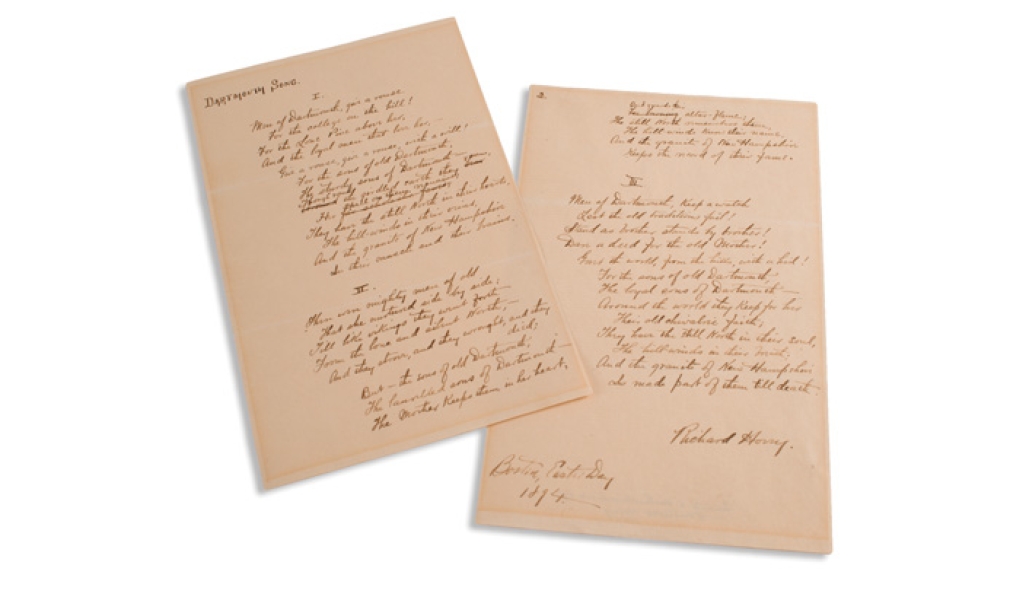 DARTMOUTH SONG.
I.
Men of Dartmouth, give a rouse
For the college on the hill!
For the Lone Pine above her,
And the loyal men that love her, —
Give a rouse, give a rouse, with a will!
For the sons of old Dartmouth,
The sturdy sons of Dartmouth —
Though round the girdled earth they roam,
Her spell on them remains;
They have the still North in their hearts,
The hill-winds in their veins,
And the granite of New Hampshire
In their muscles and their brains.
II.
They were mighty men of old
That she nurtured side by side;
Till like vikings they went forth
From the lone and silent North, —
And they strove, and they wrought, and they
died;
But — the sons of old Dartmouth,
The laurelled sons of Dartmouth —
The Mother keeps them in her heart,
2.
altar-flame;
The still North remembers them,
The hill-winds know their name,
And the granite of New Hampshire
Keeps the record of their fame.
III.
Men of Dartmouth, keep a watch
Lest the old traditions fail!
Stand as brother stands by brother!
Dare a deed for the old Mother!
Greet the world, from the hills, with a hail!
For the sons of old Dartmouth,
The loyal sons of Dartmouth —
Around the world they keep for her
Their old chivalric faith;
They have the still North in their soul,
The hill-winds in their breath;
And the granite of New Hampshire
Is made part of them till death.
Richard Hovey.
Boston, Easter Day
1894.